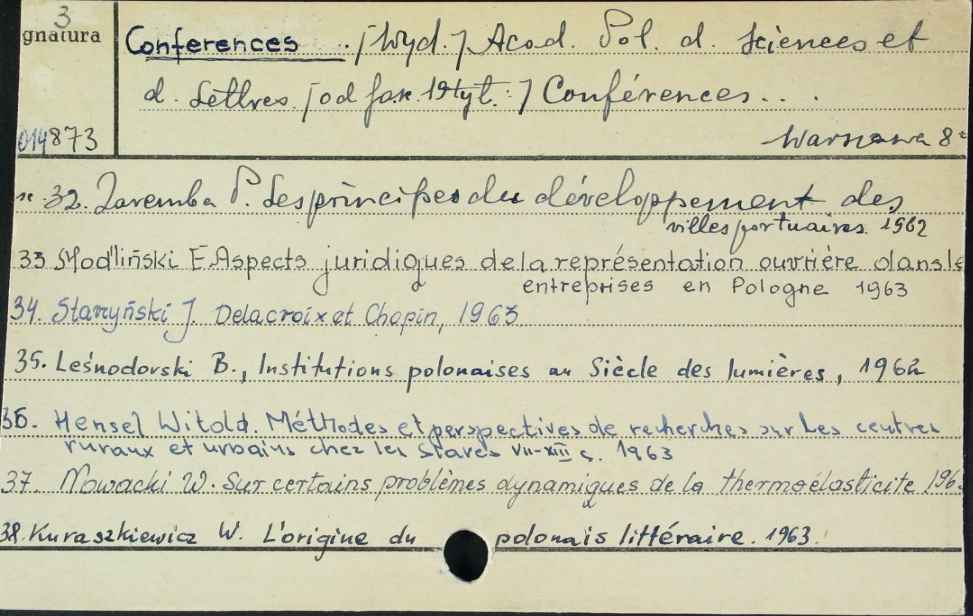 3
gnatura
Conferences .. [Wyd.] Acad. Pol. d. Sciences et
d. Lettres. [od fasc. 19 tyt.:] Conférences...
014873
Warszawa 8°
n. 32. Zaremba P. Les principes du développement des
villes portuaires. 1962
33 Modliński E. Aspects juridiques de la représentation ouvrière dans le
entreprises en Pologne 1963
34. Starzyński J. Delacroix et Chopin, 1963
35. Leśnodorski B., Institutions polonaises au Siècle des lumières, 1962
36. Hensel Witold. Méthodes et perspectives de recherches sur les centres
ruraux et urbains chez les Slaves VII-XIII s. 1963
37. Nowacki W. Sur certains problèmes dynamiques de la thermoélasticite 196
38. Kuraszkiewicz W. L'origine du polonais littéraire. 1963.